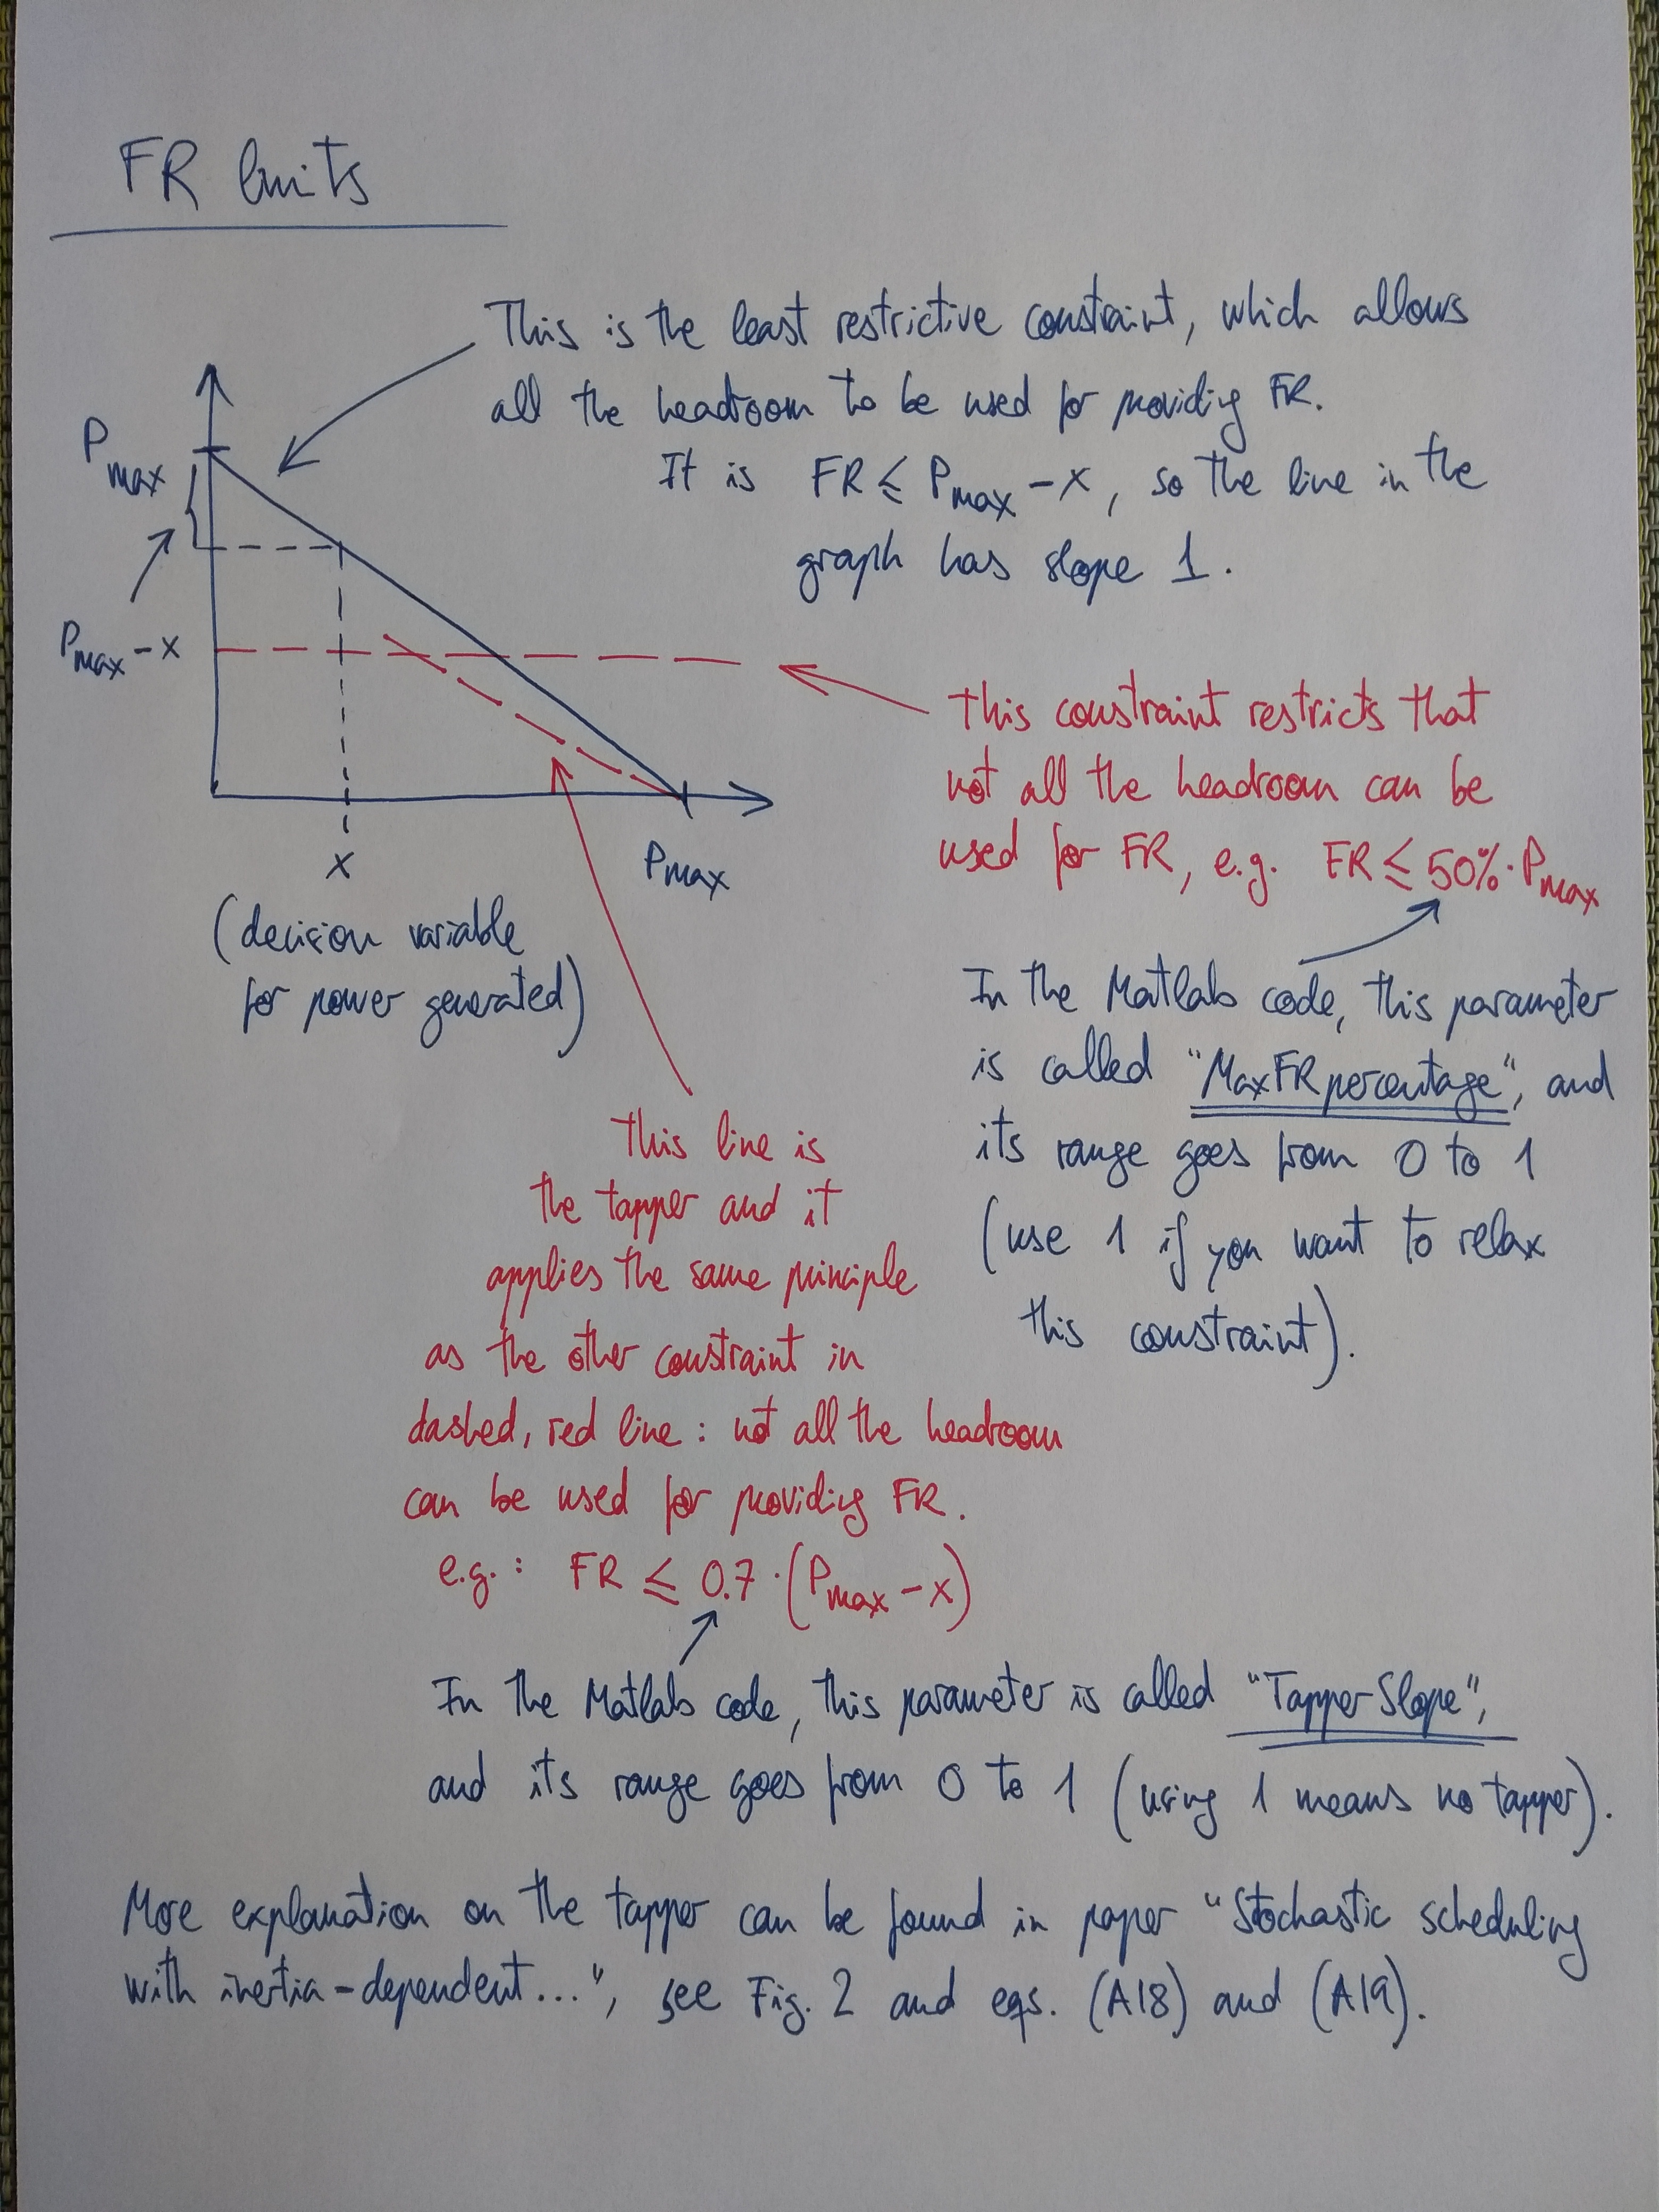 FR limits
This is the least restrictive constraint, which allows
all the headroom to be used for providing FR.
It is FR ≤ Pmax - x, so the line in the
graph has slope 1.
Pmax
Pmax - x
x
Pmax
(decision variable
for power generated)
This constraint restricts that
not all the headroom can be
used for FR, e.g. FR ≤ 50%·Pmax
In the Matlab code, this parameter
is called "MaxFRpercentage", and
its range goes from 0 to 1
(use 1 if you want to relax
this constraint).
This line is
the tapper and it
applies the same principle
as the other constraint in
dashed, red line: not all the headroom
can be used for providing FR.
e.g.: FR ≤ 0.7·(Pmax - x)
In the Matlab code, this parameter is called "TapperSlope",
and its range goes from 0 to 1 (using 1 means no tapper).
More explanation on the tapper can be found in paper "Stochastic scheduling
with inertia-dependent...", see Fig. 2 and eqs. (A18) and (A19).